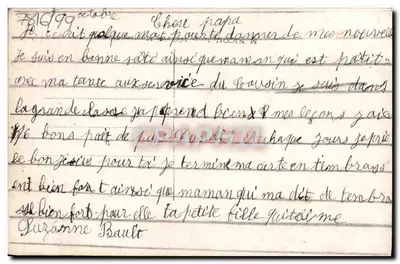 octobre
Chere papa
Je t'ecrit quelque mot pour te donner de mes nouvelle
Je suis en bonne saté ainsi que maman qui est partit
avec ma tante aux service du cousin je suis dans
la grande classe j'apprend bien mes leçons j'ai
bons pait de chaque jours je prie
le bon jesus pour toi je termine ma carte en timbrass
ent bien fort ainsi que maman qui ma dit de tembra
sse bien fort pour elle ta petite fille qui t'aime
Suzanne Bault